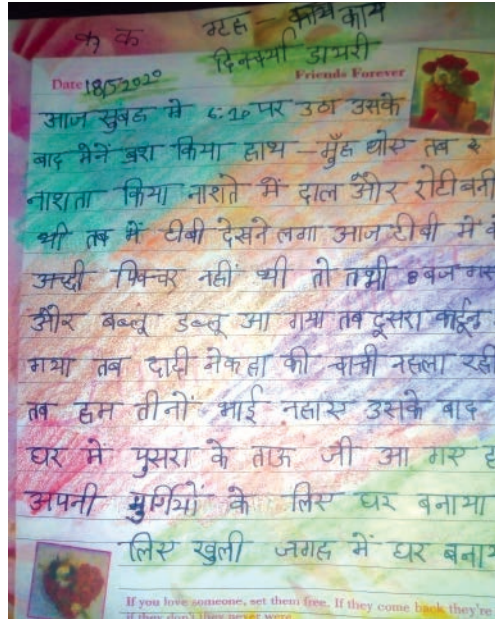 क क
ग्रह – कार्य कार्य
दिनचर्या डायरी
Friends Forever
Date 18/5-2020
आज सुबह मे 6:10 पर उठा उसके
बाद मेंने ब्रश किया हाथ – मुँह धोए तब
नाशता किया नाशते में दाल और रोटी बनी
थी तब में टीबी देखने लगा आज टीबी में
अच्छी पिक्चर नहीं थी तो तभी 8 बज गए
और बब्लू डब्लू आ गया तब दूसरा कार्टून
गया तब दादी ने कहा की चाची नहला रही
तब हम तीनों भाई नहाए उसके बाद
घर में पुसरा के ताऊ जी आ गए
अपनी मुर्गियों के लिए घर बनाया
लिए खुली जगह में घर
If you love someone, set them free. If they come back they're
if they don't they never were